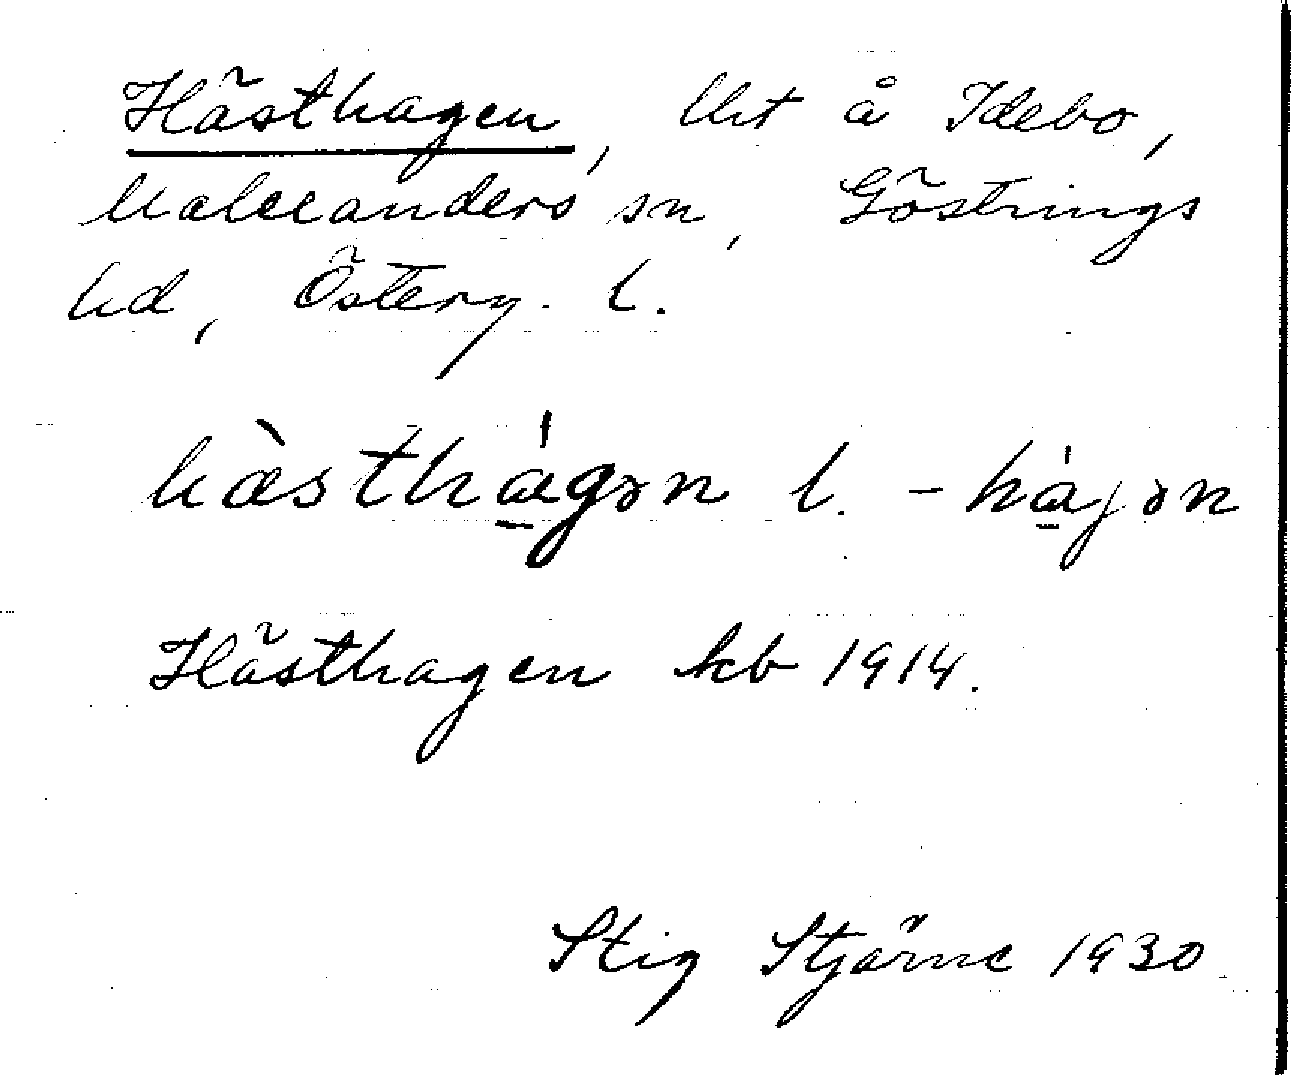 Hästhagen, lht å Idebo,
Malexanders sn, Göstrings
hd, Österg. l.
hæ̀stha̱̍gən l. -ha̱̍jən
Hästhagen kb 1914.
Stig Stjärne 1930